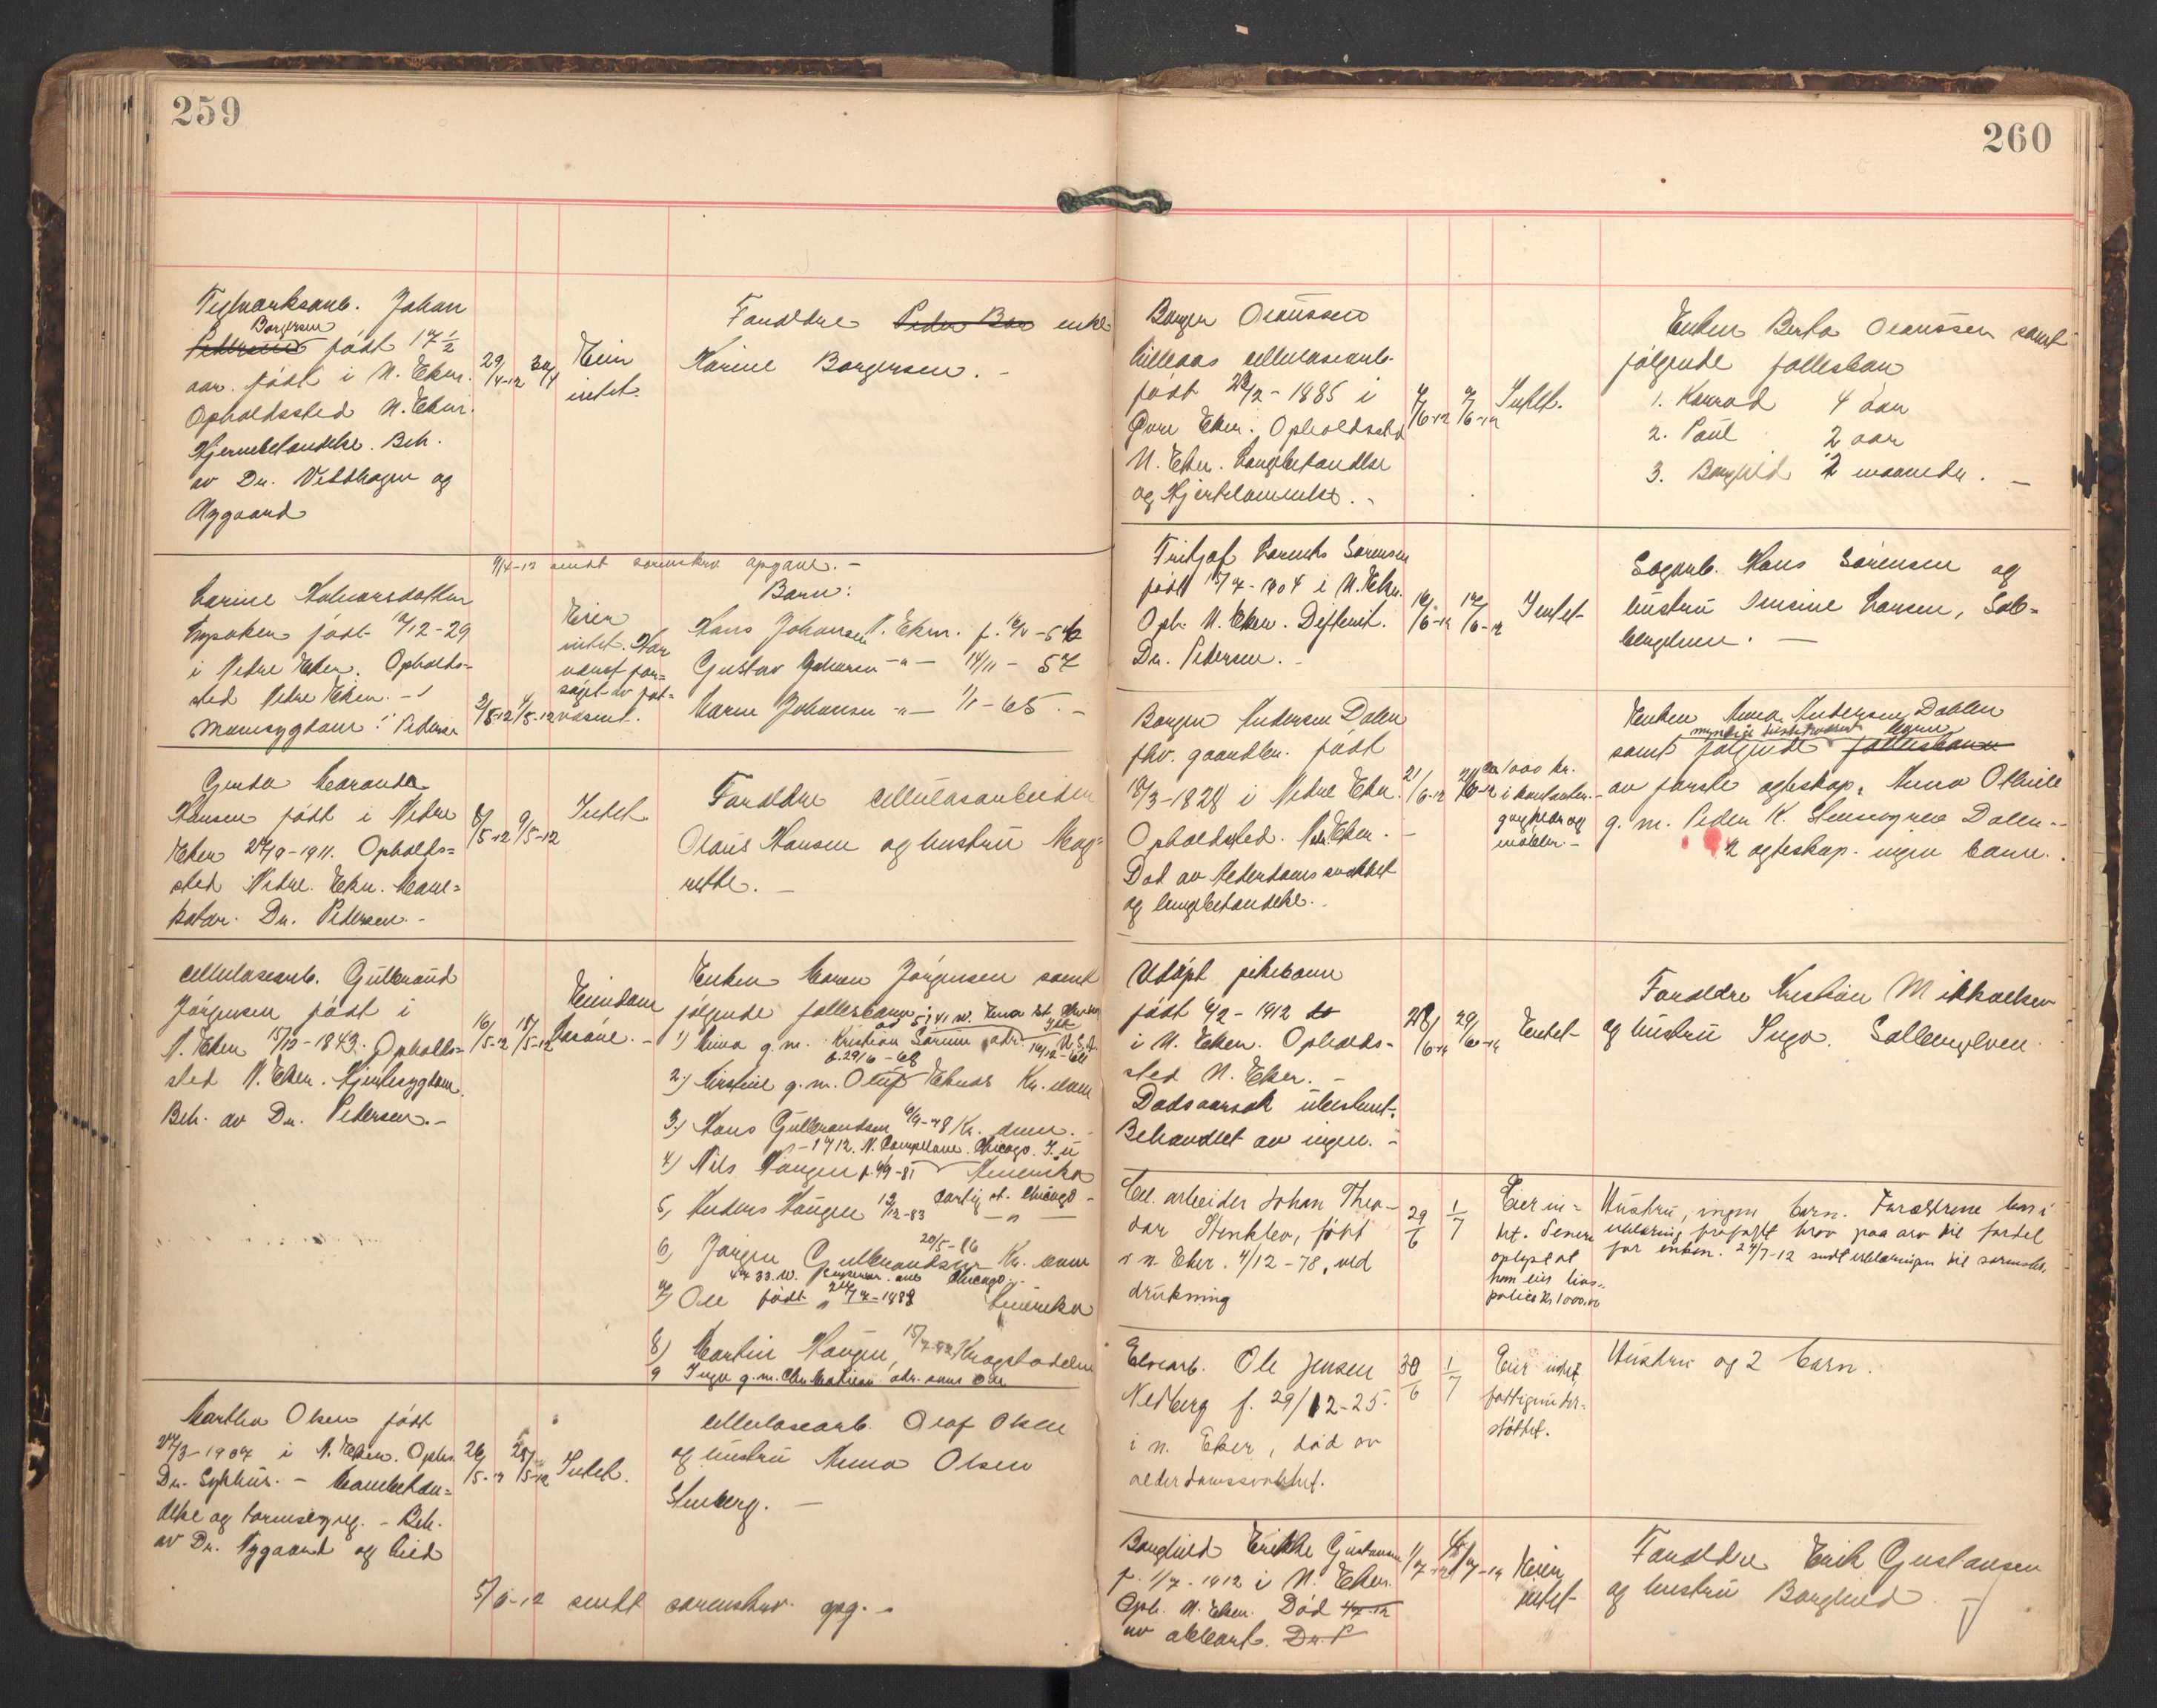 259
Teglværksarb. Johan
Borgersen
Pedersen født 17 1/2
aar. født i N. Eker.
Opholdssted N. Eker.
Hjernebetændelse. Beh.
av Dr. Vebthagen og
Nygaard
29/4-12
30/4
Eier
intet.
Forældre Peder Bor enke
Karine Borgersen. -
9/4-12 sendt sorenskr. opgave. -
Karine Halvorsdatter
født 9/12-29
i Nedre Eker. Opholds-
sted Nedre Eker. -
Mavesygdom. Pedersen
2/5-12
4/5-12
Eier
intet. Har
været for-
sørget av fat-
væsent.
Barn:
Hans Johansen N. Eker. f.
Gustav Johansen -"- 14/11 - 57
Maren Johansen -"- 1/1 - 65. -
Gerda Maranda
Hansen født i Nedre
Eker 24/9-1911. Opholds-
sted Nedre Eker. Mave-
katar. Dr. Pedersen. -
8/5-12
9/5-12
Intet
Forældre cellulosearbeider
Olaus Hansen og hustru Mag-
rethe. -
Cellulosearb. Gulbrand
Jørgensen født i
N. Eker 15/12-1843. Opholds-
sted N. Eker. Hjertesygdom.
Beh. av Dr. Pedersen. -
16/5-12
18/5-12
Eiendom
Enken Maren Jørgensen samt
følgende fællesbarn
1) Anna g. m. Kristian Sørum adr. U.S.A.
f. 29/6 - 68
2) Kirstine g. m. Oluf Kr. dom
3) Hans Gulbrandsen 6/9-78 Kr. dom. -
- 1712. N. Campbell ave. Chicago. Ill
4) Nils Haugen f. 9/9-81 Amerika
5) Anders Haugen 12/12-83 Chicago -
6) Jørgen Gulbrandsen 20/5-86 Kr. dom
Chicago
7) Ole født 24/7-1889 Amerika
8) Martin Haugen, Krogstadelven
9 Inga g. m. Chr. Mathisen adr. som Ole
Martha Olsen født
27/3-1907 i N. Eker. Ophs.
Dr. Sykhus. - Mavebetæn-
delse og tarmslyng. - Beh.
av Dr. Nygaard og Lied
26/5-12
28/5-12
Intet.
Cellulosearb. Olaf Olsen
og hustru Anna Olsen
Stenberg. -
5/6-12 sendt sorenskr. opg. -
260
Borger Olaussen
Lilleaas cellulosearb.
født 28/2-1885 i
Øvre Eker. Opholdssted
N. Eker. Lungebetændelse
og Hjertelammelse. -
7/6-12
7/6-12
Intet.
Enken Berta Olaussen samt
følgende fællesbarn
1. Konrad 4 aar
2. Paul 2 aar
3. Borghild 2 maaneder. -
Fritjof Laurits Sørensen
født 15/7-1904 i N. Eker.
Oph. N. Eker. Difterit.
Dr. Pedersen. -
16/6-12
17/6-12
Intet
Sagarb. Hans Sørensen og
hustru Jensine Larsen, Sol-
bergelven. -
Borger Andersen Dalen
fhv. gaardbr. født
18/3-1828 i Nedre Eker.
Opholdssted. N. Eker. -
Død av Alderdomssvakhet
og lungebetændelse. -
21/6-12
ca 1000 kr.
i kontanter. -
gagnklær og
møbler. -
Enken Anna Andersen Dahlen
samt følgende fællesbarn
av første egteskap, Anna Othilie
g. m. Peder K. Stensvgren Dalen -
2 egteskap. ingen barn.
Udøpt pikebarn
født 6/2-1912
i N. Eker. Opholds-
sted N. Eker. -
Dødsaarsak ubestemt.
Behandlet av ingen. -
28/6-12
29/6-12
Intet
Forældre Kristian Mikkelsen
og hustru Inga. Solbergelven.
Cel. arbeider Johan Theo-
dor Stenklev, født
i n. Eker. 4/12-78, ved
drukning
29/6
1/7
Eier in-
tet. Senere
oplyst at
han eier livs-
police kr 1000,00
Hustru, ingen barn. Forældrene har i
erklæring frafaldt krav paa arv til fordel
for enken. 24/7-12 sendt erklæringen til sorenskr.
Elvearb. Ole Jensen
Nedberg f. 29/12-25.
i n. Eker, død av
alderdomssvakhet.
30/6
1/7
Eier intet,
fattigunder-
støttet.
Hustru og 2 barn.
Borghild Erikke Gustavsen
f. 1/7-1912 i N. Eker.
Oph. N. Eker. Død
1/7-12
Eier
intet
Forældre Erik Gustavsen
og hustru Borghild -